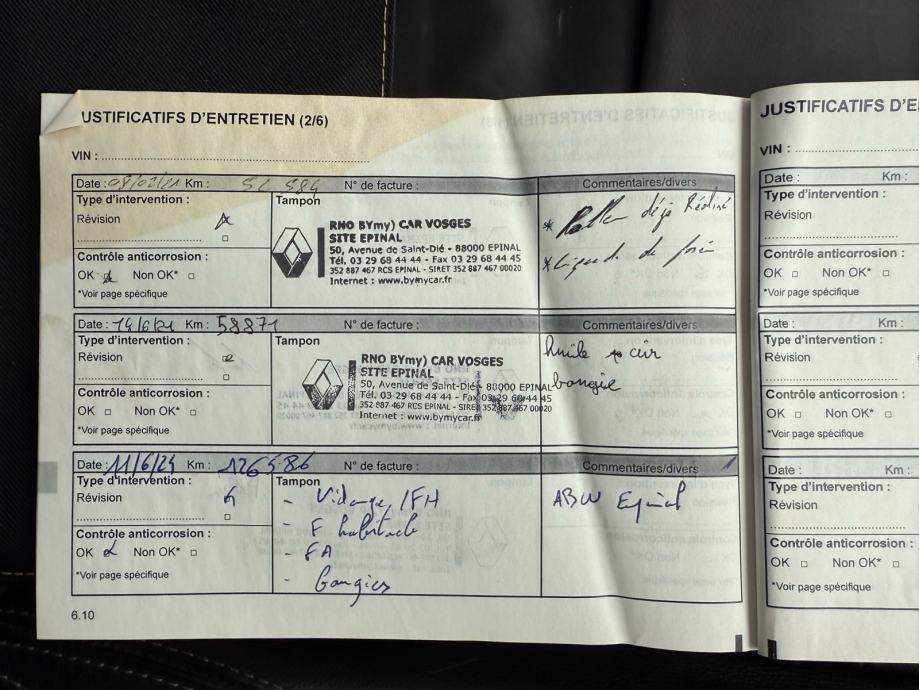 JUSTIFICATIFS D'ENTRETIEN (2/6)
VIN :
Date : Km : N° de facture : Commentaires/divers
Type d'intervention :
Révision
Contrôle anticorrosion :
OK Non OK*
*Voir page spécifique
Tampon
RNO BYmy) CAR VOSGES
SITE EPINAL
50, Avenue de Saint-Dié - 88000 EPINAL
Tél. 03 29 68 44 44 - Fax 03 29 68 44 45
352 887 467 RCS EPINAL - SIRET 352 887 467 00020
Internet : www.bymycar.fr
* déjà Réalisé
* Liquide de frein
Date : Km : 58871 N° de facture : Commentaires/divers
Type d'intervention :
Révision
Contrôle anticorrosion :
OK Non OK*
*Voir page spécifique
Tampon
RNO BYmy) CAR VOSGES
SITE EPINAL
50, Avenue de Saint-Dié - 88000 EPINAL
Tél. 03 29 68 44 44 - Fax 03 29 68 44 45
352 887 467 RCS EPINAL - SIRET 352 887 467 00020
Internet : www.bymycar.fr
huile
bougie
Date : 11/6/24 Km : 126586 N° de facture : Commentaires/divers
Type d'intervention :
Révision
Contrôle anticorrosion :
OK Non OK*
*Voir page spécifique
Tampon
- Vidange / FH
- F habitacle
- FA
- Bougies
ABW Epinal
6.10
JUSTIFICATIFS D'E
VIN :
Date : Km :
Type d'intervention :
Révision
Contrôle anticorrosion :
OK Non OK*
*Voir page spécifique
Date : Km :
Type d'intervention :
Révision
Contrôle anticorrosion :
OK Non OK*
*Voir page spécifique
Date : Km :
Type d'intervention :
Révision
Contrôle anticorrosion :
OK Non OK*
*Voir page spécifique